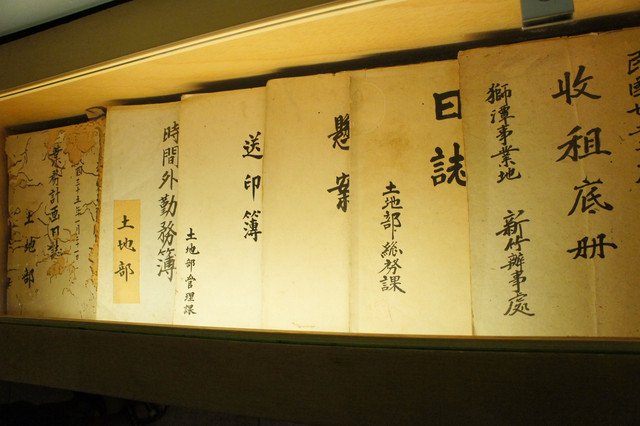 收租底冊
獅潭事業地 新竹辦事處
日誌
土地部總務課
懸案
送印簿
土地部管理課
時間外勤務簿
土地部
業務計画日誌
土地部